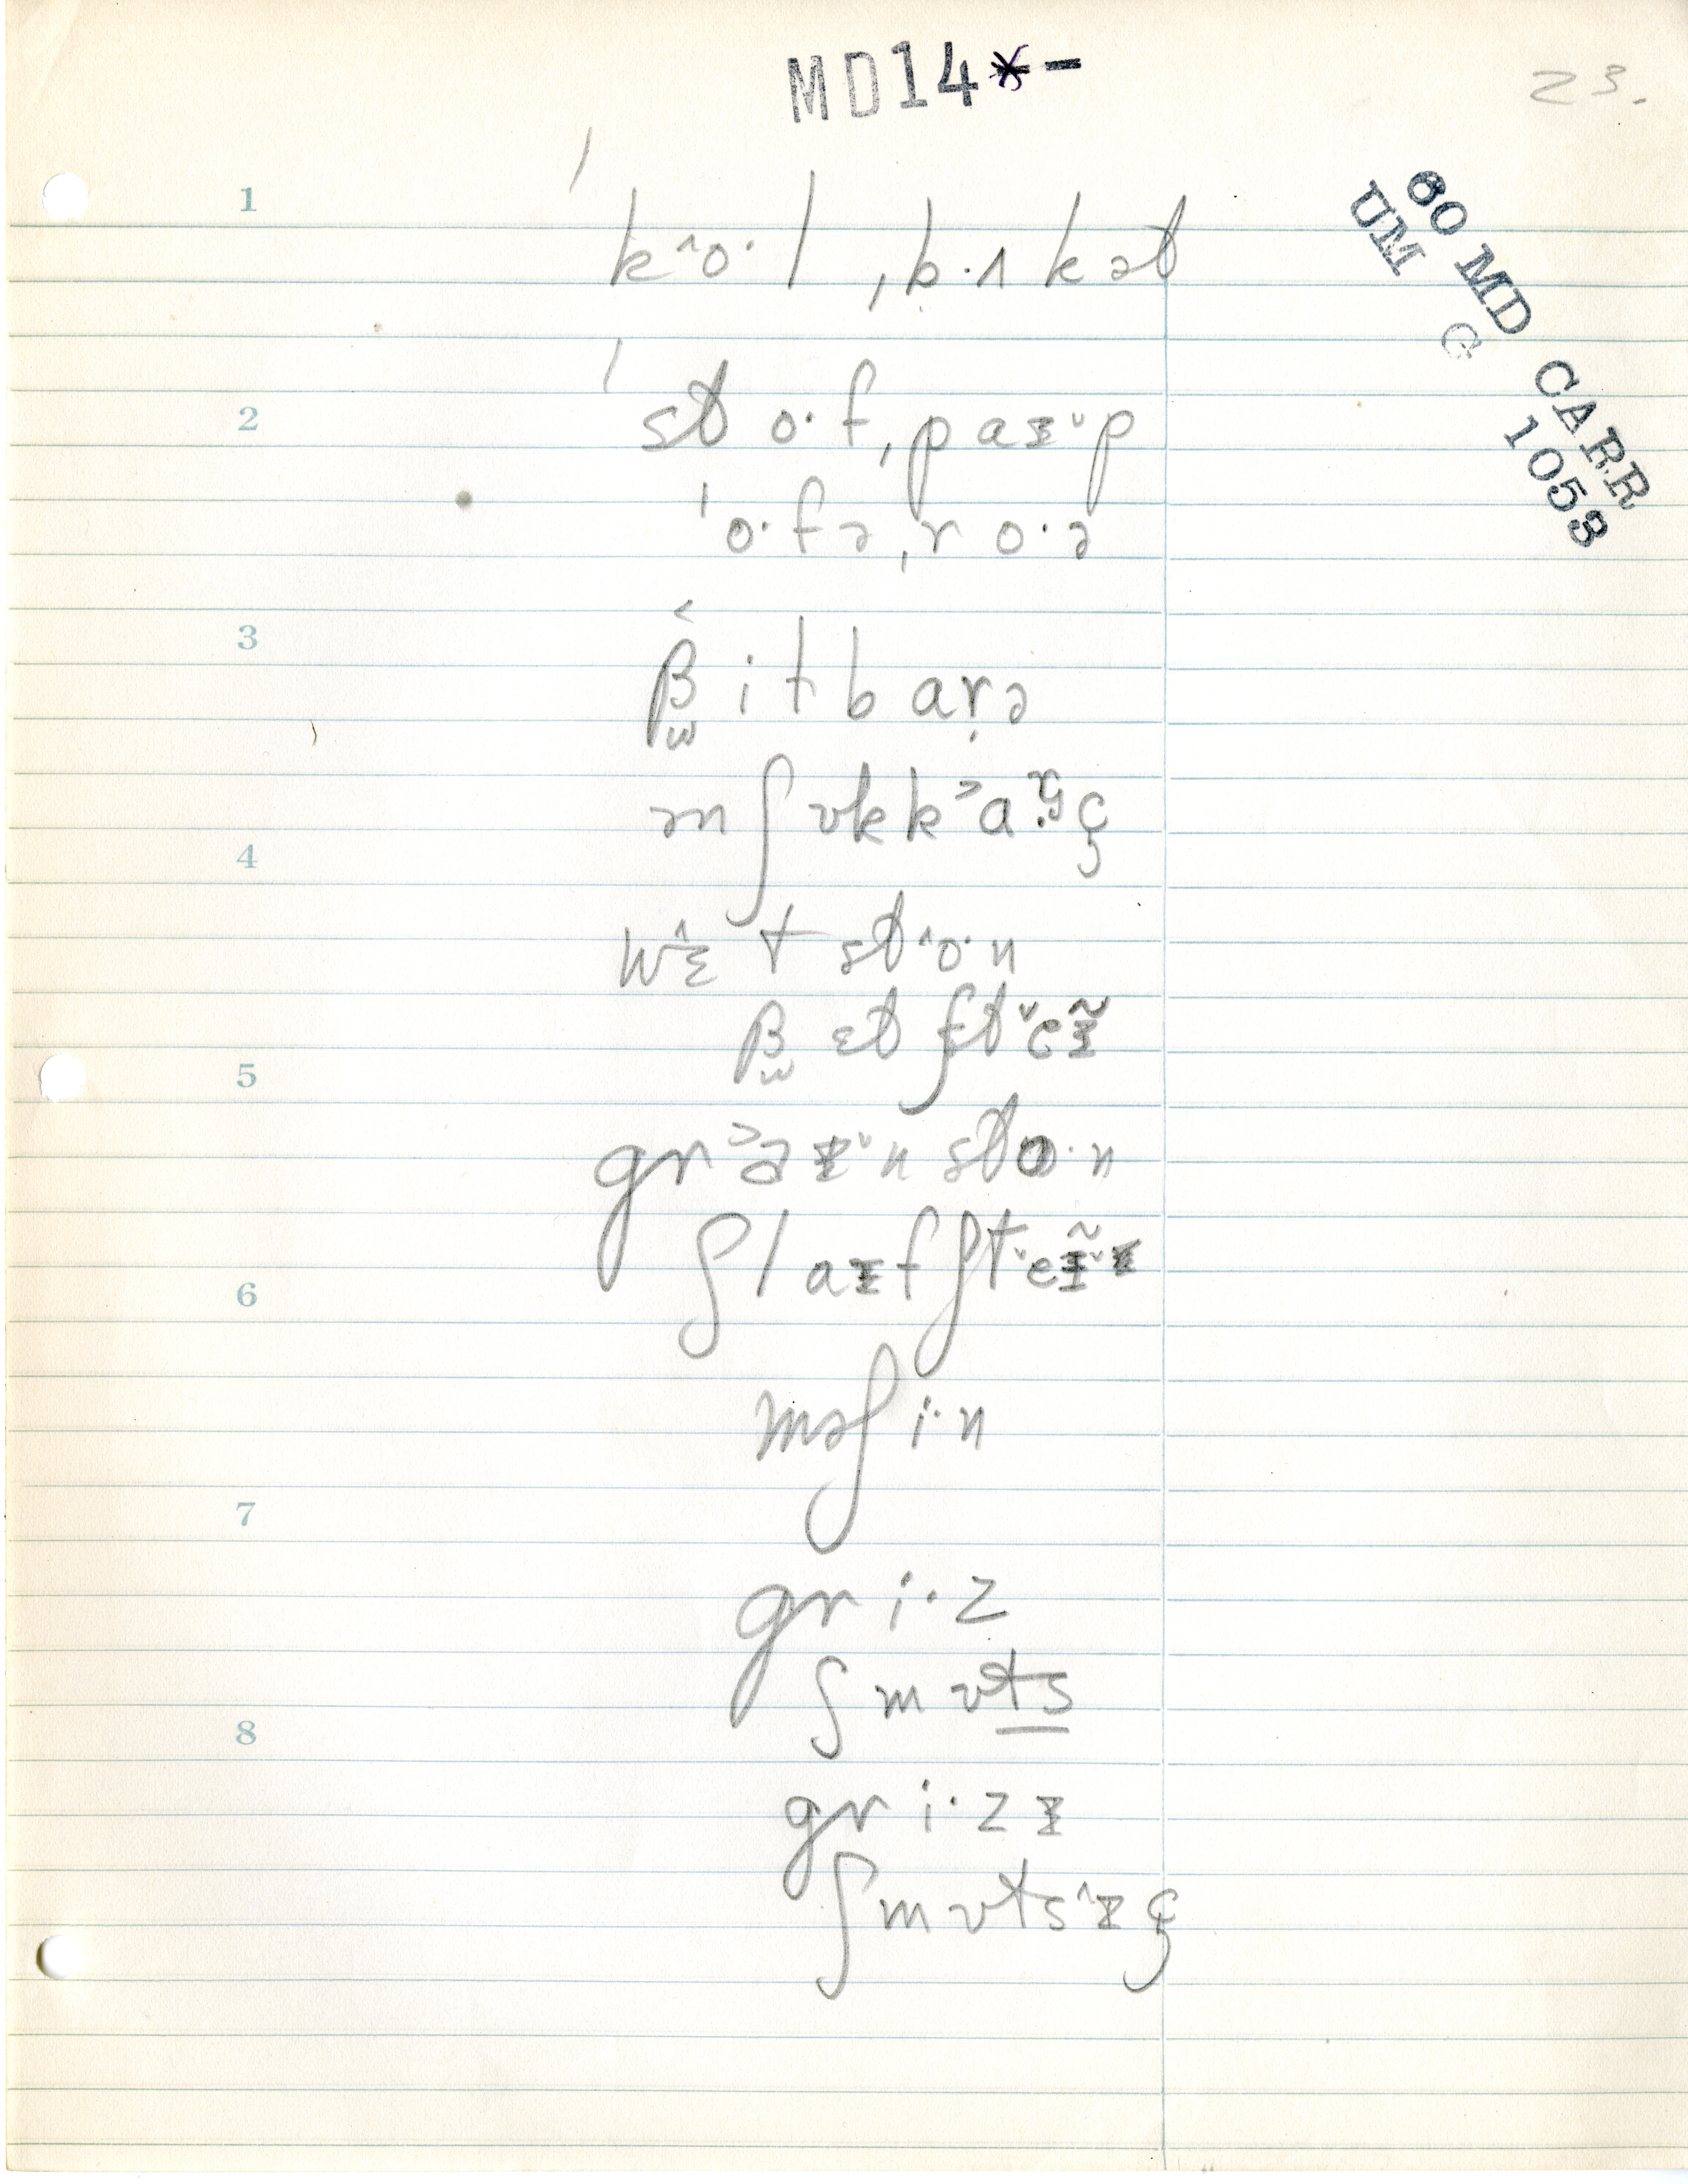 MD14*-
23.
60 MD CARR
UM G 1053
1
ˈko^·l ˌb·ʌkət
2
ˈst o·f ˌpaɪ˅p
ˈo·fə ˌro·ə
3
β̫ it bar̩ə
mʃʊkk˃aɐ̯ç
4
wɛ^t st^o·n
β̫ ɛt ʃt˅eɪ̃
5
gr˃əɪ˅n sto·n
ʃlaɪf ʃt˅eɪ̃˅
6
məʃi·n
7
gri·z
ʃmʊts
8
gri·zɪ
ʃmʊts^ɪç